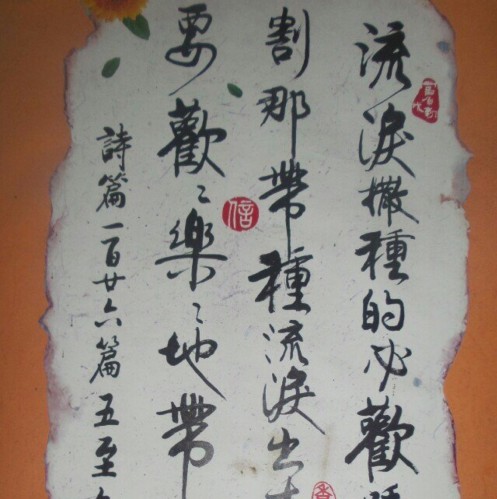 流淚撒種的必歡
割那帶種流淚出
要歡〻樂〻地帶
詩篇一百廿六篇五至
信